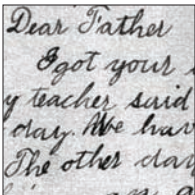 Dear Father
I got your
y teacher said
day. We hav
The other day